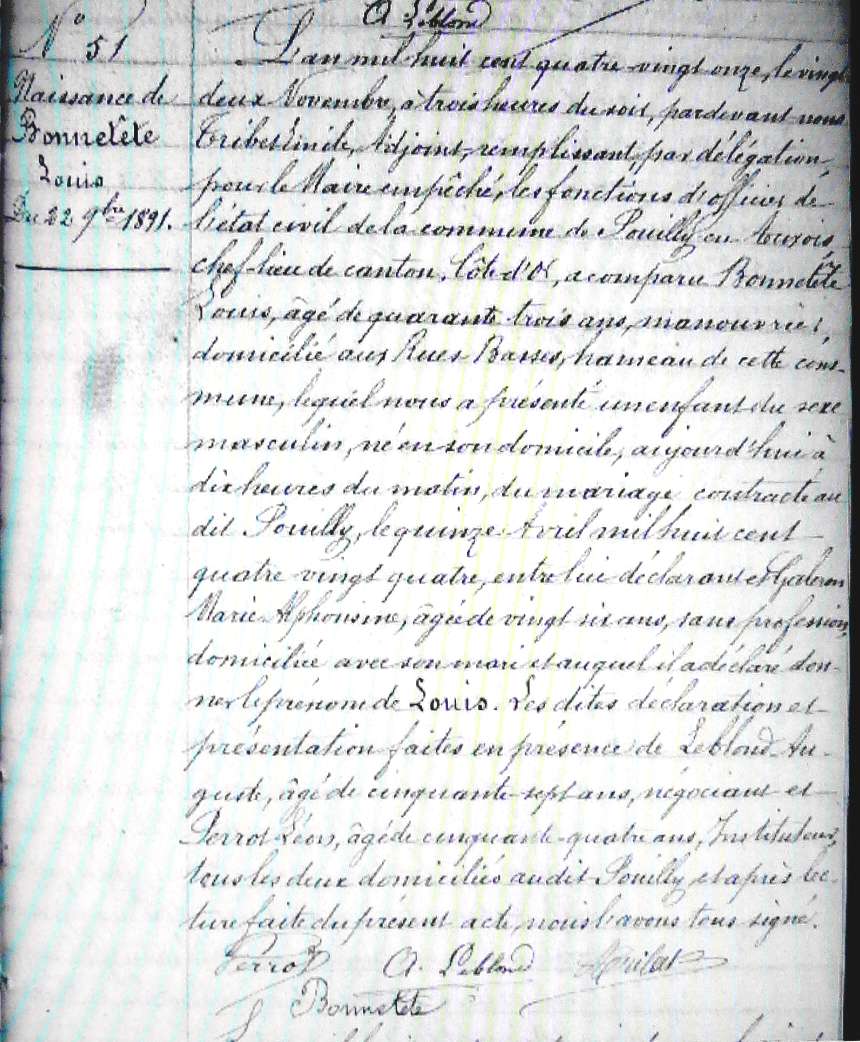 A. Leblond
N° 51
Naissance de
Bonnetête
Louis
Du 22 9bre 1891.
L'an mil huit cent quatre-vingt onze, le vingt
deux Novembre, à trois heures du soir, pardevant nous
Tribet, Adjoint, remplissant par délégation,
pour le Maire empêché, les fonctions d'officier de
l'état civil de la commune de Pouilly en Auxois,
chef-lieu de canton, Côte d'Or, a comparu Bonnetête
Louis, âgé de quarante trois ans, manouvrier,
domicilié aux Rues Basses, hameau de cette com-
mune, lequel nous a présenté un enfant du sexe
masculin, né en son domicile, aujourd'hui à
dix heures du matin, du mariage contracté au
dit Pouilly, le quinze Avril mil huit cent
quatre vingt quatre, entre lui déclarant et
Marie Alphonsine, âgée de vingt six ans, sans profession,
domiciliée avec son mari et auquel il a déclaré don-
ner le prénom de Louis. Les dites déclaration et
présentation faites en présence de Leblond Au-
guste, âgé de cinquante-sept ans, négociant et
Perrot Léon, âgé de cinquante-quatre ans, Instituteur,
tous les deux domiciliés audit Pouilly et après lec-
ture faite du présent acte, nous l'avons tous signé.
Perrot A. Leblond
Bonnetête